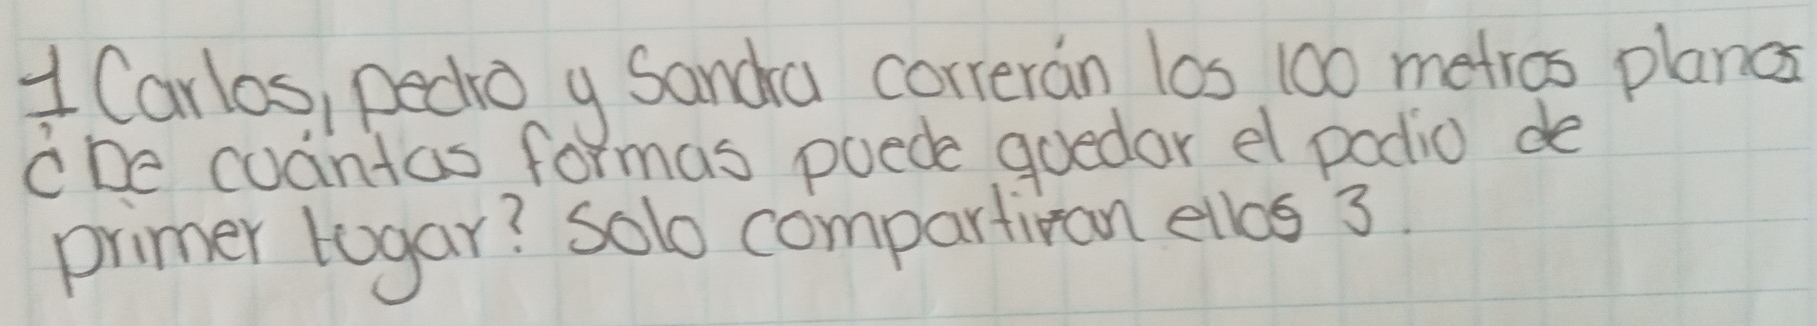 1 Carlos, pedro y Sandra correrán los 100 metros planos
¿De cuántas formas puede quedar el podio de
primer lugar? Solo compartiran ellos 3.